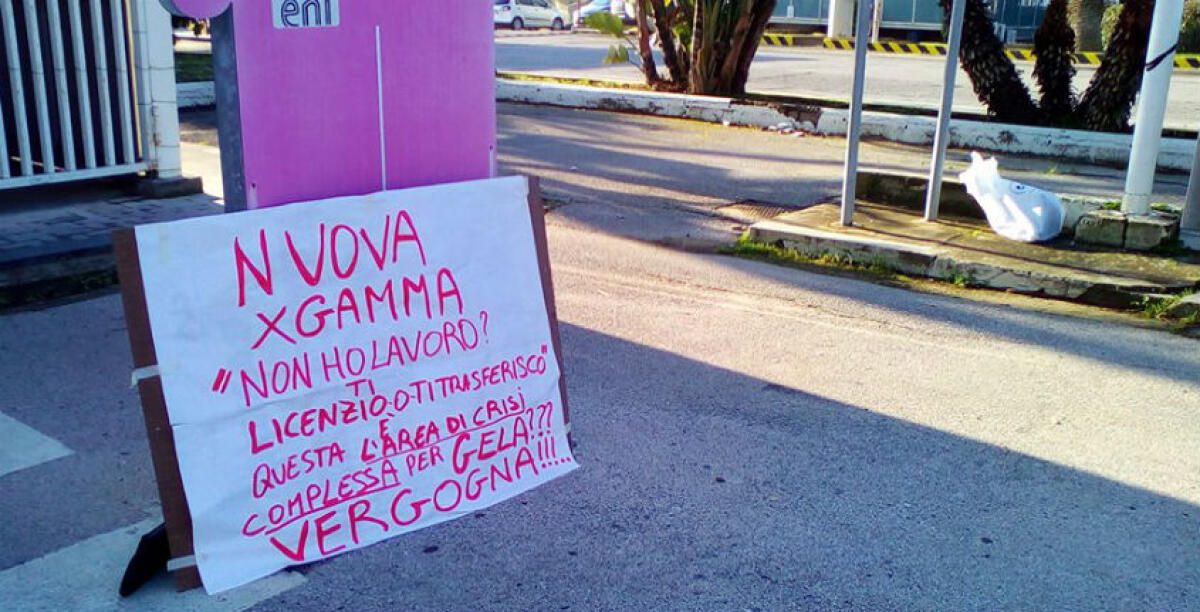 eni
NUOVA
XGAMMA
"NON HO LAVORO?
TI
LICENZIO.O.TI TRASFERISCO"
QUESTA È L'AREA DI CRISI
COMPLESSA PER GELA???
VERGOGNA!!!...